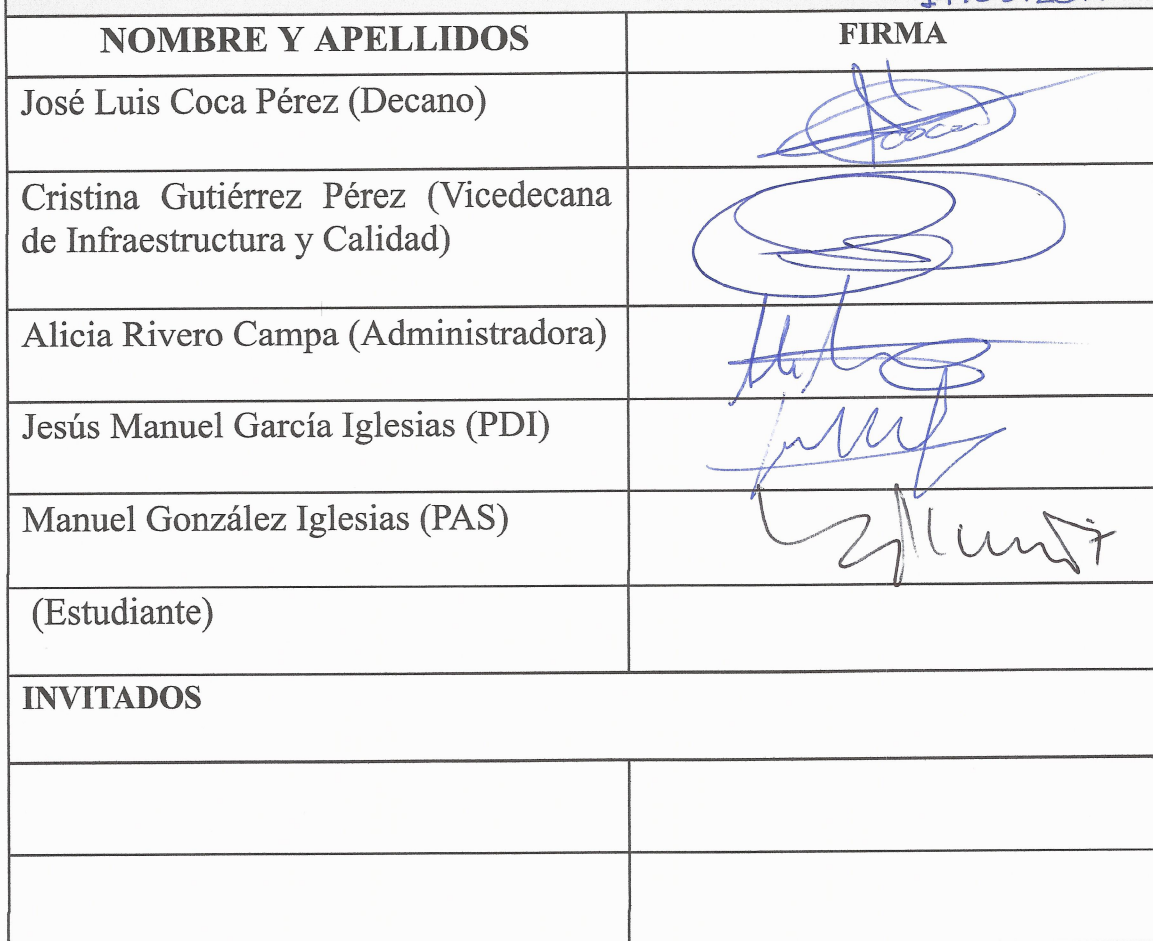 NOMBRE Y APELLIDOS
FIRMA
José Luis Coca Pérez (Decano)
Cristina Gutiérrez Pérez (Vicedecana
de Infraestructura y Calidad)
Alicia Rivero Campa (Administradora)
Jesús Manuel García Iglesias (PDI)
Manuel González Iglesias (PAS)
(Estudiante)
INVITADOS